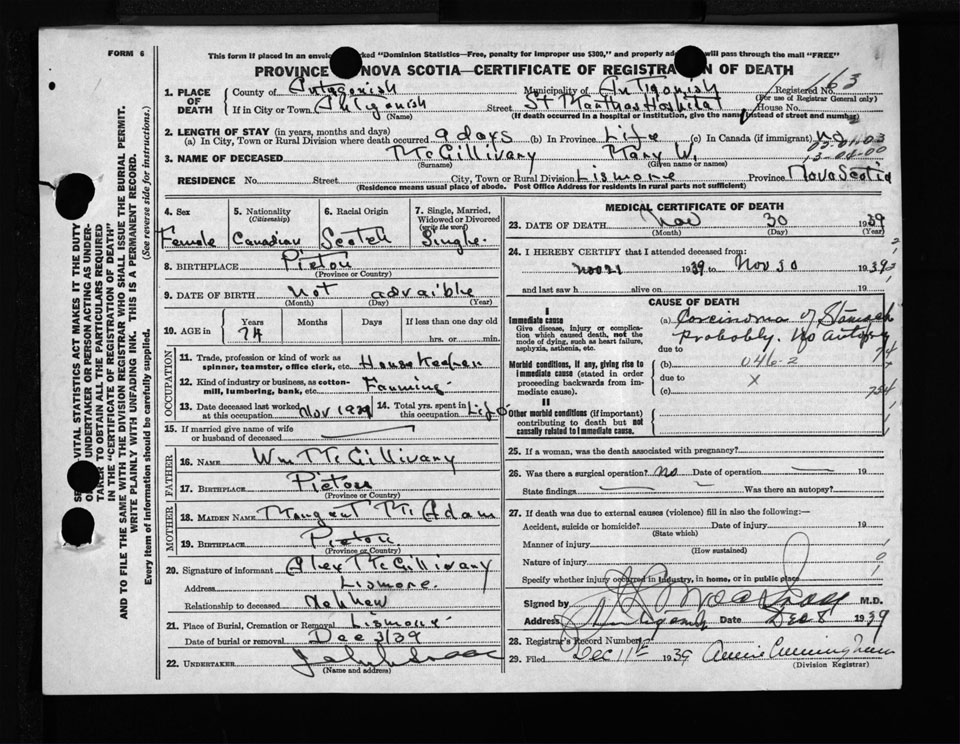 FORM 6
This form if placed in an envelope marked "Dominion Statistics—Free, penalty for improper use $300," and properly ad will pass through the mail "FREE"
PROVINCE NOVA SCOTIA—CERTIFICATE OF REGISTRATION OF DEATH
163
1. PLACE OF DEATH County of Antagonish Municipality of Antigonish Registered No.
(For use of Registrar General only)
If in City or Town Antigonish Street St Marthas Hospital House No.
(Name) (If death occurred in a hospital or institution, give the name instead of street and number)
2. LENGTH OF STAY (in years, months and days)
(a) In City, Town or Rural Division where death occurred 9 days (b) In Province Life (c) In Canada (if immigrant) no
3. NAME OF DECEASED McGillivary Mary W.
(Surname) (Given name or names)
RESIDENCE No. Street City, Town or Rural Division Lismore Province Nova Scotia
(Residence means usual place of abode. Post Office Address for residents in rural parts not sufficient)
4. Sex Female
5. Nationality (Citizenship) Canadian
6. Racial Origin Scotch
7. Single, Married, Widowed or Divorced (write the word) Single.
8. BIRTHPLACE Pictou
(Province or Country)
9. DATE OF BIRTH not advaible
(Month) (Day) (Year)
10. AGE in Years Months Days If less than one day old
74 hrs. or min.
OCCUPATION
11. Trade, profession or kind of work as spinner, teamster, office clerk, etc. House Keeper
12. Kind of industry or business, as cotton-mill, lumbering, bank, etc. Farming
13. Date deceased last worked at this occupation Nov 1939 14. Total yrs. spent in this occupation Life
15. If married give name of wife or husband of deceased
FATHER
16. NAME Wm McGillivary
17. BIRTHPLACE Pictou
(Province or Country)
MOTHER
18. MAIDEN NAME Margaret McAdam
19. BIRTHPLACE Pictou
(Province or Country)
20. Signature of informant Alex McGillivary
Address Lismore.
Relationship to deceased Nephew
21. Place of Burial, Cremation or Removal Lismore
Date of burial or removal Dec 3/39
22. UNDERTAKER
(Name and address)
MEDICAL CERTIFICATE OF DEATH
23. DATE OF DEATH Nov 30 1939
(Month) (Day) (Year)
24. I HEREBY CERTIFY that I attended deceased from:
Nov 21 1939 to Nov 30 1939
and last saw h alive on 19
CAUSE OF DEATH
I
Immediate cause (a) Carcinoma of Stomach
Give disease, injury or complication which caused death, not the mode of dying, such as heart failure, asphyxia, asthenia, etc. Probably. No autopsy
due to
Morbid conditions, if any, giving rise to immediate cause (stated in order proceeding backwards from immediate cause). (b) 046-2
due to X
(c)
II
Other morbid conditions (if important) contributing to death but not causally related to immediate cause.
25. If a woman, was the death associated with pregnancy?
26. Was there a surgical operation? no Date of operation 19
State findings Was there an autopsy?
27. If death was due to external causes (violence) fill in also the following:—
Accident, suicide or homicide? Date of injury 19
(State which)
Manner of injury
(How sustained)
Nature of injury
Specify whether injury occurred in industry, in home, or in public place
Signed by M.D.
Address Antigonish Date Dec 8 1939
28. Registrar's Record Number
29. Filed Dec 11th 1939 Annie Cunningham
(Division Registrar)
VITAL STATISTICS ACT MAKES IT THE DUTY
UNDERTAKER OR PERSON ACTING AS UNDERTAKER TO OBTAIN ALL THE PARTICULARS REQUIRED
IN THE "CERTIFICATE OF REGISTRATION OF DEATH"
AND TO FILE THE SAME WITH THE DIVISION REGISTRAR WHO SHALL ISSUE THE BURIAL PERMIT.
WRITE PLAINLY WITH UNFADING INK. THIS IS A PERMANENT RECORD.
Every item of information should be carefully supplied. (See reverse side for instructions.)